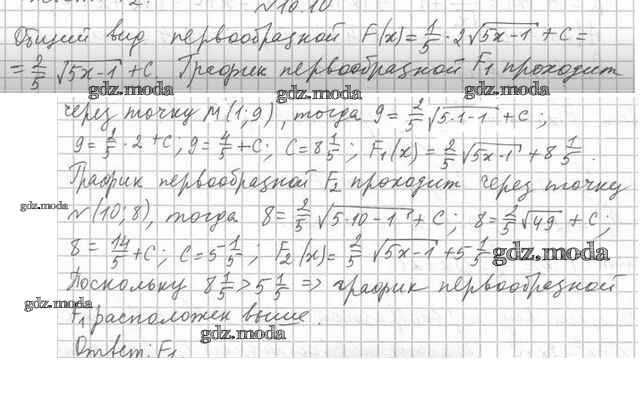 №10.10
Общий вид первообразной F(x)=1/5·2√(5x-1)+C=
=2/5 √(5x-1)+C. График первообразной F₁ проходит
gdz.moda gdz.moda gdz.moda
через точку M(1;9), тогда 9=2/5 √(5·1-1)+C;
9=2/5·2+C; 9=4/5+C; C=8 1/5; F₁(x)=2/5 √(5x-1)+8 1/5.
График первообразной F₂ проходит через точку
gdz.moda
N(10;8), тогда 8=2/5 √(5·10-1)+C; 8=2/5 √49+C;
8=14/5+C; C=5 1/5; F₂(x)=2/5 √(5x-1)+5 1/5
gdz.moda
Поскольку 8 1/5>5 1/5 => график первообразной
gdz.moda
F₁ расположен выше.
gdz.moda
Ответ: F₁